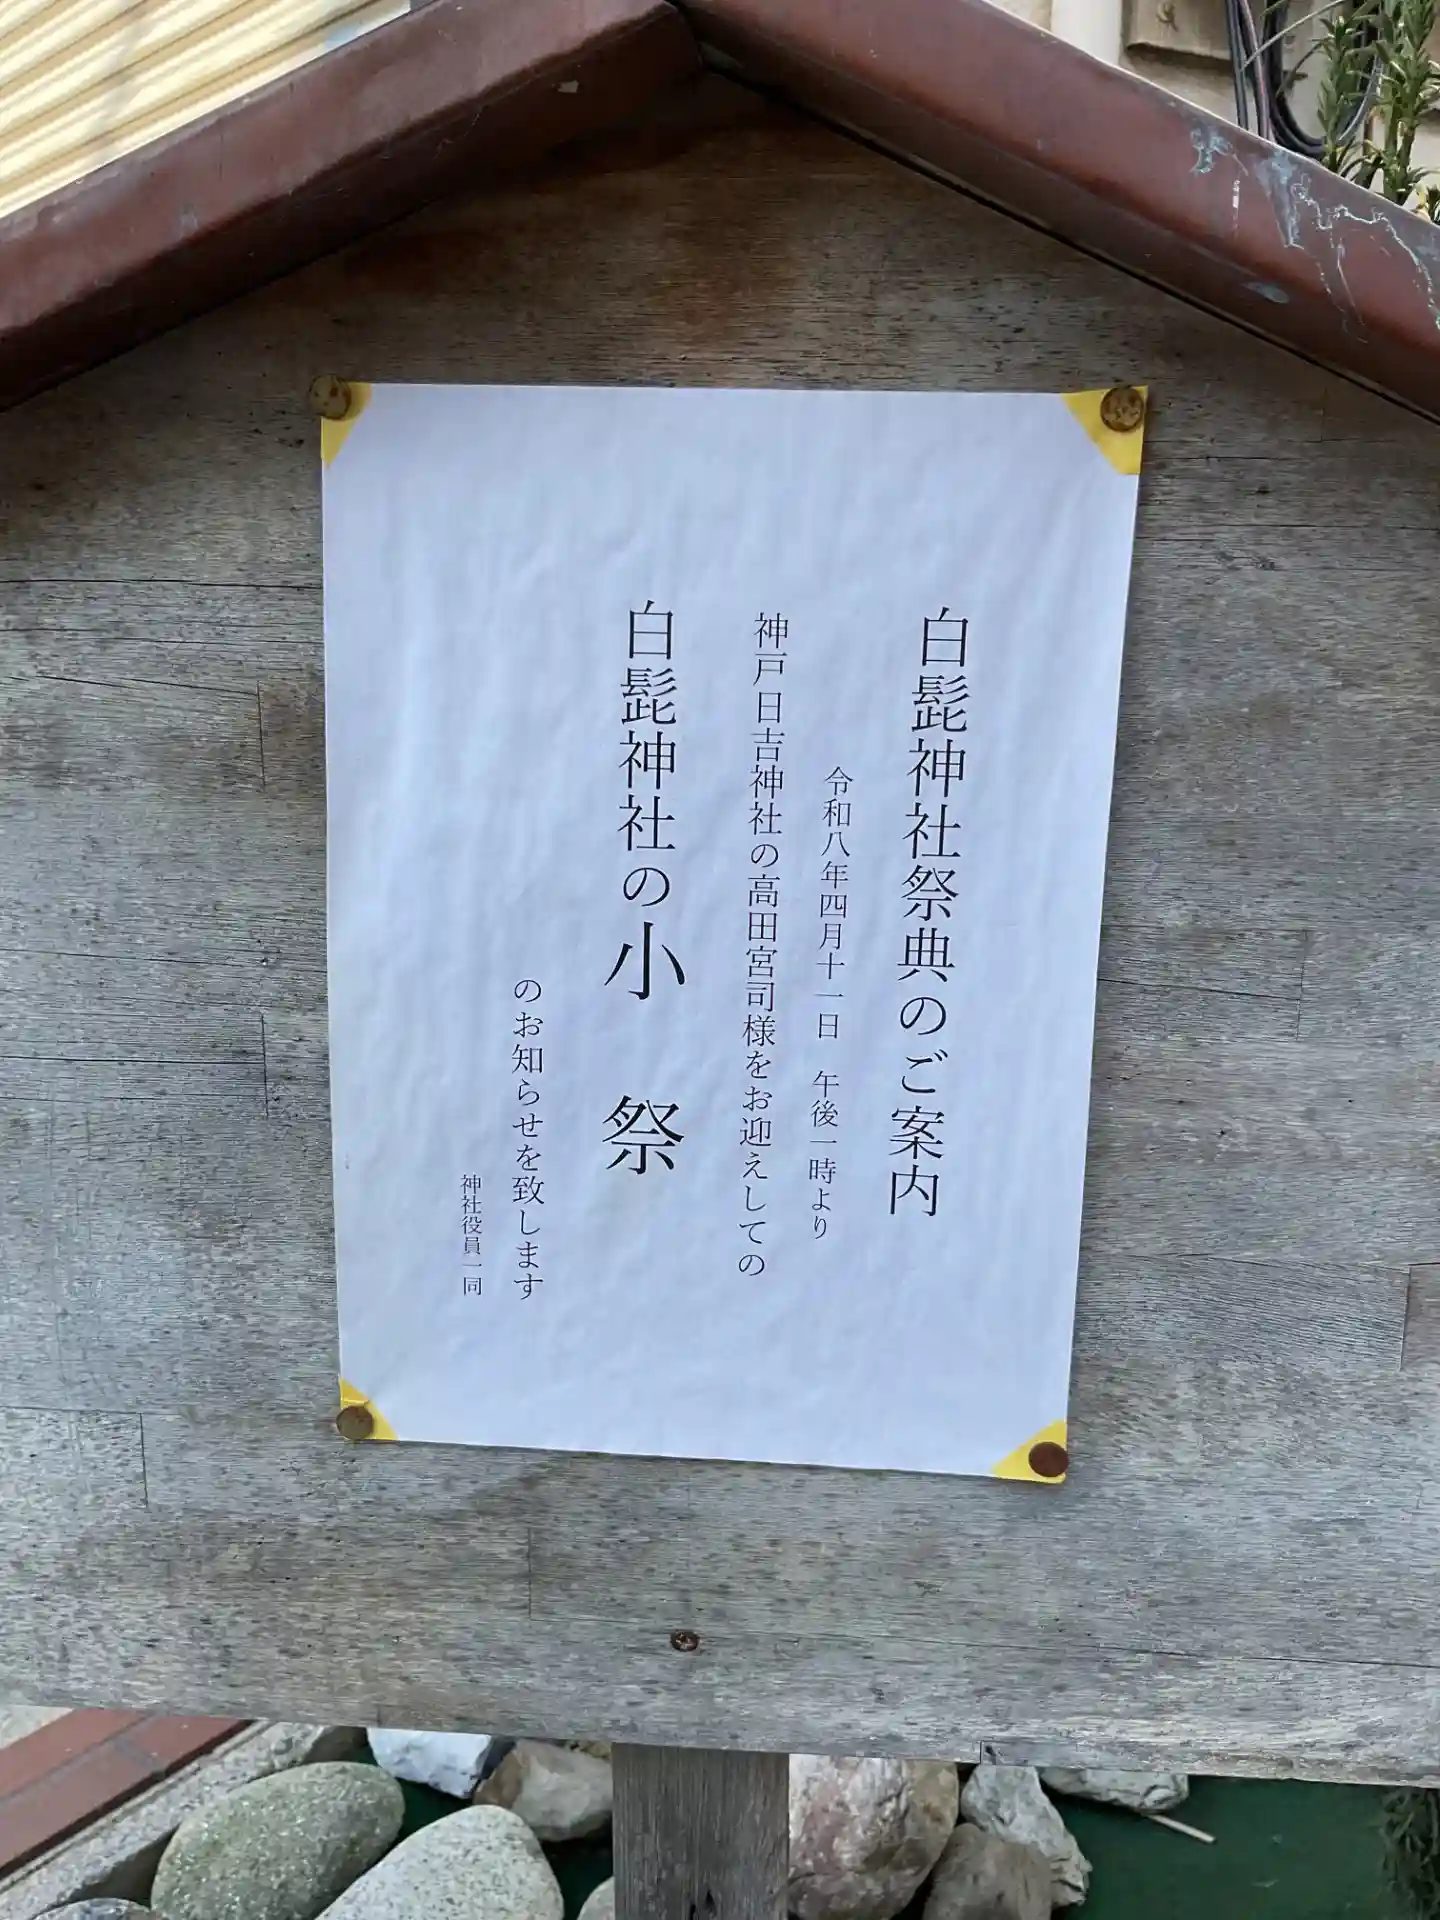 白髭神社祭典のご案内
令和八年四月十一日　午後一時より
神戸日吉神社の高田宮司様をお迎えしての
白髭神社の小　祭
のお知らせを致します
神社役員一同